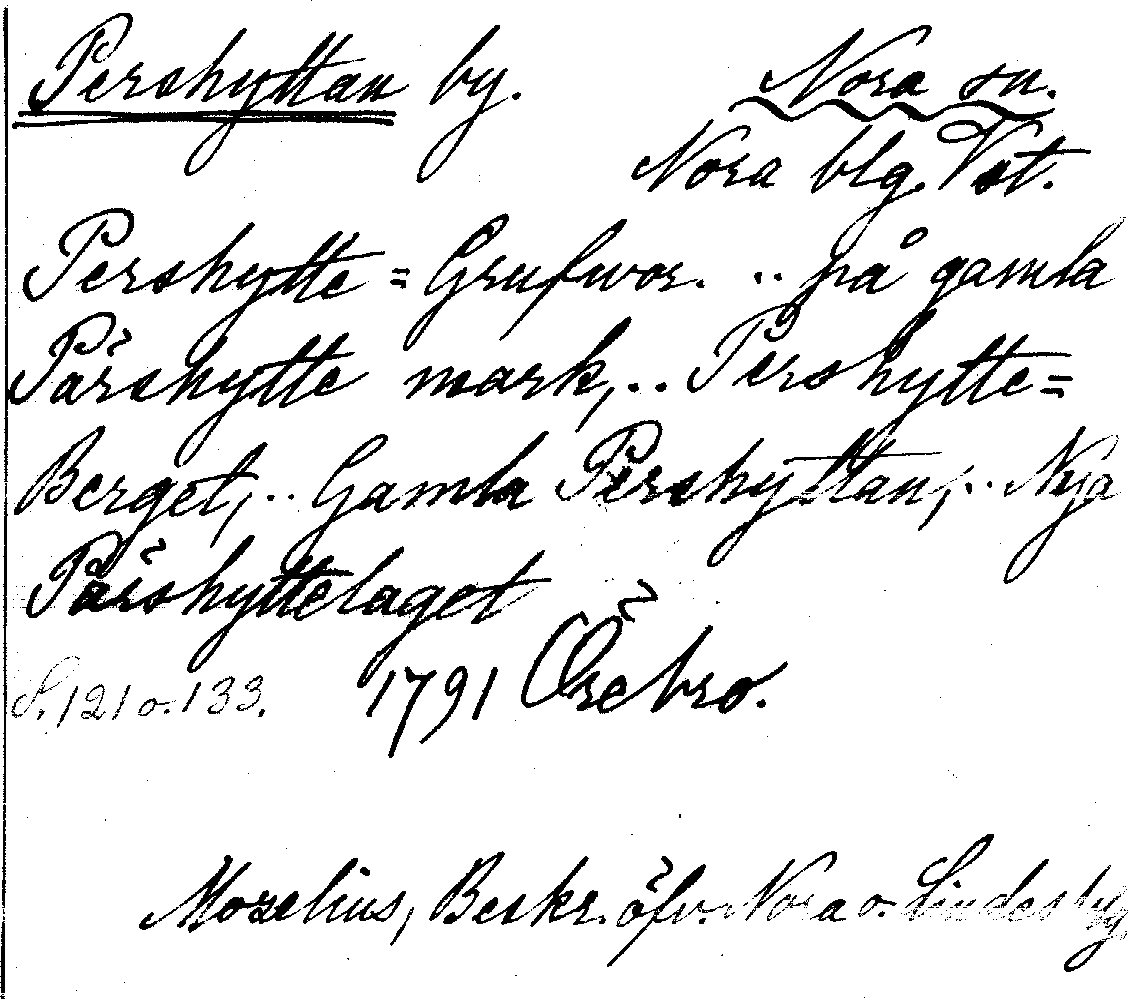 Pershyttan by. Nora sn.
Nora blg. Vst.
Pershytte = Grufwor. .. på gamla
Pärshytte mark, .. Pershytte=
Berget, .. Gamla Pershyttan, .. Nya
Pärshyttelaget
S. 121 o. 133. 1791 Örebro.
Mozelius, Beskr. öfv. Nora o. Lindes